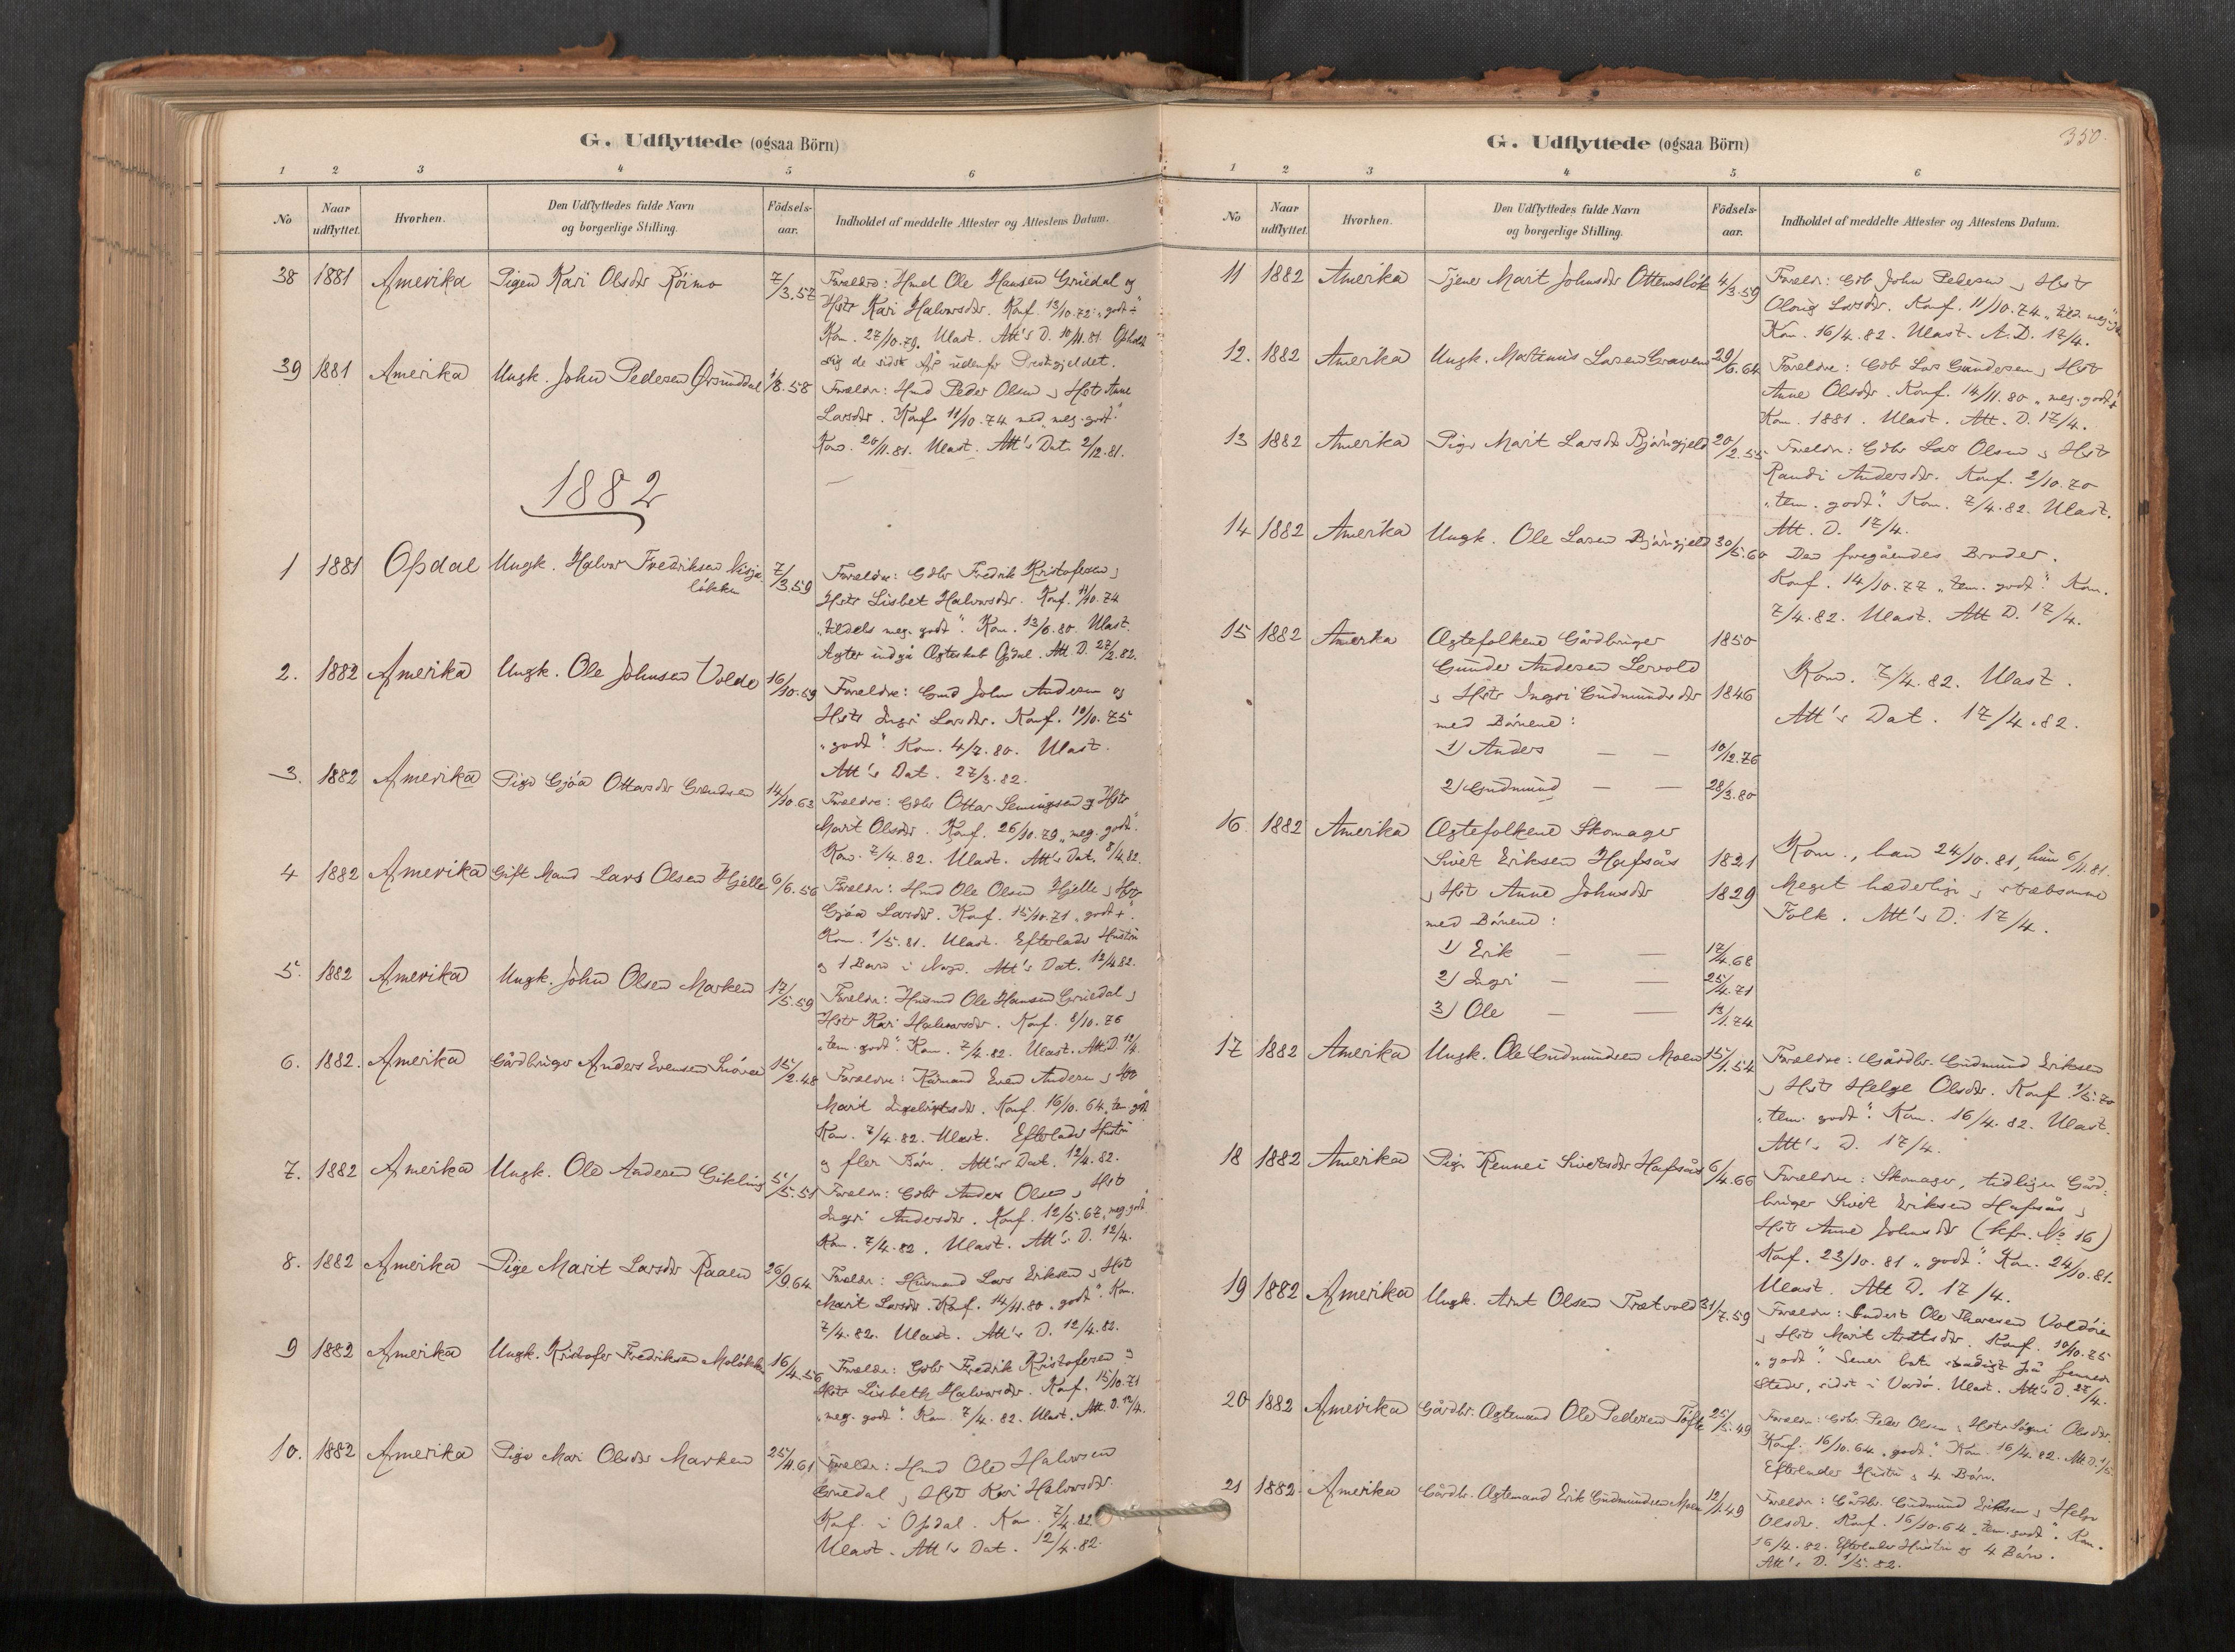 G. Udflyttede (ogsaa Börn)
1 2 3 4 5 6
No Naar udflyttet. Hvorhen. Den Udflyttedes fulde Navn og borgerlige Stilling. Födsels-aar. Indholdet af meddelte Attester og Attestens Datum.
38 1881 Amerika Pigen Kari Olsdr Röimo 7/3.57 Forældre: Hmd Ole Hansen Gruedal og
Hstr Kari Halvorsdr. Konf. 13/10.72: "godt+"
Kom. 27/10.79. Ulast. Att's D. 10/11.81. Opholdt
sig de sidste År udenfor Prestegjeldet.
39 1881 Amerika Ungk. John Pedersen Örsunddal 1/8.58 Forældr: Hmd Peder Olsen og Hstr Anne
Larsdr. Konf. 11/10.74 med "meg. godt."
Kom. 20/11.81. Ulast. Att's Dat. 2/12.81.
1882
1 1881 Opdal Ungk. Halvor Fredriksen
løkken 7/3.59 Forældre: Gdbr Fredrik Kristofersen og
Hstr Lisbet Halvorsdr. Konf. 11/10.74
"tildels meg. godt". Kom. 13/6.80. Ulast.
Agter indgå Ægteskab Opdal. Att. D. 27/2.82.
2. 1882 Amerika Ungk. Ole Johnsen Volde 16/10.59 Forældre: Gmd John Andersen og
Hstr Ingri Larsdr. Konf. 10/10.75
"godt". Kom. 4/7.80. Ulast.
Att's Dat. 27/3.82.
3. 1882 Amerika Pige Gjöa Ottarsdr 14/10.63 Forældre: Gdbr Ottar Semingsen og Hstr
Marit Olsdr. Konf. 26/10.79 "meg. godt".
Kom. 7/4.82. Ulast. Att's Dat. 8/4.82.
4 1882 Amerika Gift Mand Lars Olsen Hjelle 6/6.56 Forældr: Hmd Ole Olsen Hjelle og Hstr
Gjöa Larsdr. Konf. 15/10.71 "godt+".
Kom. 1/5.81. Ulast. Efterlader Hustru
og 1 Barn i Norge. Att's Dat. 12/4.82.
5. 1882 Amerika Ungk. John Olsen Marken 17/5.59 Forældr: Husmd Ole Hansen Gruedal og
Hstr Kari Halvorsdr. Konf. 8/10.76
"tem. godt". Kom. 7/4.82. Ulast. Att. D. 12/4.
6. 1882. Amerika Gårdbruger Anders Evensen 15/2.48 Forældre: Kårmand Even Andersen og Hstr
Marit Ingebrigtsdr. Konf. 16/10.64 "tem. godt"
Kom. 7/4.82. Ulast. Efterlader Hustru
og flere Börn. Att's Dat. 12/4.82.
7. 1882 Amerika Ungk. Ole Andersen Gikling 5/5.51 Forældr: Gdbr Anders Olsen og Hstr
Ingri Andersdr. Konf. 12/5.67 "meg. godt".
Kom. 7/4.82. Ulast. Att's D. 12/4.
8. 1882 Amerika Pige Marit Larsdr Raaen 26/9.64 Forældr: Husmand Lars Eriksen og Hstr
Marit Larsdr. Konf. 14/11.80 "godt". Kom.
7/4.82. Ulast. Att's D. 12/4.82.
9 1882 Amerika Ungk. Kristofer Fredriksen Moløkken 16/4.56 Forældr: Gdbr Fredrik Kristofersen og
Hstr Lisbeth Halvorsdr. Konf. 15/10.71
"meg. godt". Kom. 7/4.82. Ulast. Att. D. 12/4.
10. 1882 Amerika Pige Mari Olsdr Marken 25/4.61 Forældr: Hmd Ole Halvorsen
Gruedal og Hstr Kari Halvorsdr.
Konf. i Opdal. Kom. 7/4.82.
Ulast. Att's Dat. 12/4.82.
350.
G. Udflyttede (ogsaa Börn)
1 2 3 4 5 6
No Naar udflyttet. Hvorhen. Den Udflyttedes fulde Navn og borgerlige Stilling. Födsels-aar. Indholdet af meddelte Attester og Attestens Datum.
11 1882 Amerika Tjener Marit Johnsdr Ottemsløk 4/3.59 Forældr: Gdb John Pedersen og Hstr
Olaug Larsdr. Konf. 11/10.74
Kom. 16/4.82. Ulast. A. D. 17/4.
12. 1882 Amerika Ungk. Martinus Larsen Gravem 29/6.64 Forældre: Gdb Lars Gundersen og Hstr
Anne Olsdr. Konf. 14/11.80 "meg. godt+"
Kom. 1881. Ulast. Att. D. 17/4.
13 1882 Amerika Pige Marit Larsdr Bjørngjeld 20/2.55 Forældr: Gdbr Lars Olsen og Hstr
Randi Andersdr. Konf. 2/10.70
"tem. godt". Kom. 7/4.82. Ulast.
Att. D. 17/4.
14 1882 Amerika Ungk. Ole Larsen Bjørngjeld 30/5.60 Den foregåendes Broder.
Konf. 14/10.77 "tem. godt". Kom.
7/4.82. Ulast. Att D. 17/4.
15 1882 Amerika Ægtefolkene Gårdbruger 1850
Gunder Andersen Lervold
og Hstr Ingri Gudmundsdr 1846 Kom. 7/4.82. Ulast.
med Börnene: Att's Dat. 17/4.82.
1) Anders — — 10/12.76
2) Gudmund — — 28/3.80
16. 1882 Amerika Ægtefolkene Skomager
Sivert Eriksen Hafsås 1821 Kom., han 24/10.81, hun 6/11.81.
og Hstr Anne Johnsdr 1829 Meget hæderlige og stræbsomme
med Börnene: Folk. Att's D: 17/4.
1) Erik — — 17/4.68
2) Ingri — — 25/4.71
3) Ole — — 13/1.74
17 1882 Amerika Ungk. Ole Gudmundsen Moen 15/1.54 Forældre: Gårdbr. Gudmund Eriksen
og Hstr Helge Olsdr. Konf. 1/5.70
"tem. godt". Kom. 16/4.82. Ulast.
Att's D. 17/4.
18 1882 Amerika Pige Rennei Sivertsdr Hafsås 6/4.66 Forældre: Skomager, tidligere Gård-
bruger Sivert Eriksen Hafsås og
Hstr Anne Johnsdr (kfr. No 16)
Konf. 23/10.81 "godt". Kom. 24/10.81.
Ulast. Att D. 17/4.
19 1882 Amerika Ungk. Arnt Olsen Trætvold 31/7.59 Forældr: Inderst Ole Thoresen Voldöien
og Hstr Marit Arntsdr. Konf. 10/10.75
"godt". Senere stadigt på fremmede
Steder, sidst i Vardö. Ulast. Att's D. 27/4.
20 1882 Amerika Gårdbr. Ægtemand Ole Pedersen Töfte 25/5.49 Forældr: Gdbr. Peder Olsen og Hstr Sigrí Olsdr.
Konf. 16/10.64 "godt". Kom. 16/4.82. Att D. 1/5.
Efterlader Hustru og 4 Börn.
21 1882 Amerika Gårdbr. Ægtemand Erik Gudmundsen Moen 12/1.49 Forældr: Gårdbr. Gudmund Eriksen og Helge
Olsdr. Konf. 16/10.64 "tem. godt". Kom.
16/4.82. Efterlader Hustru og 4 Börn.
Att's D. 1/5.82.